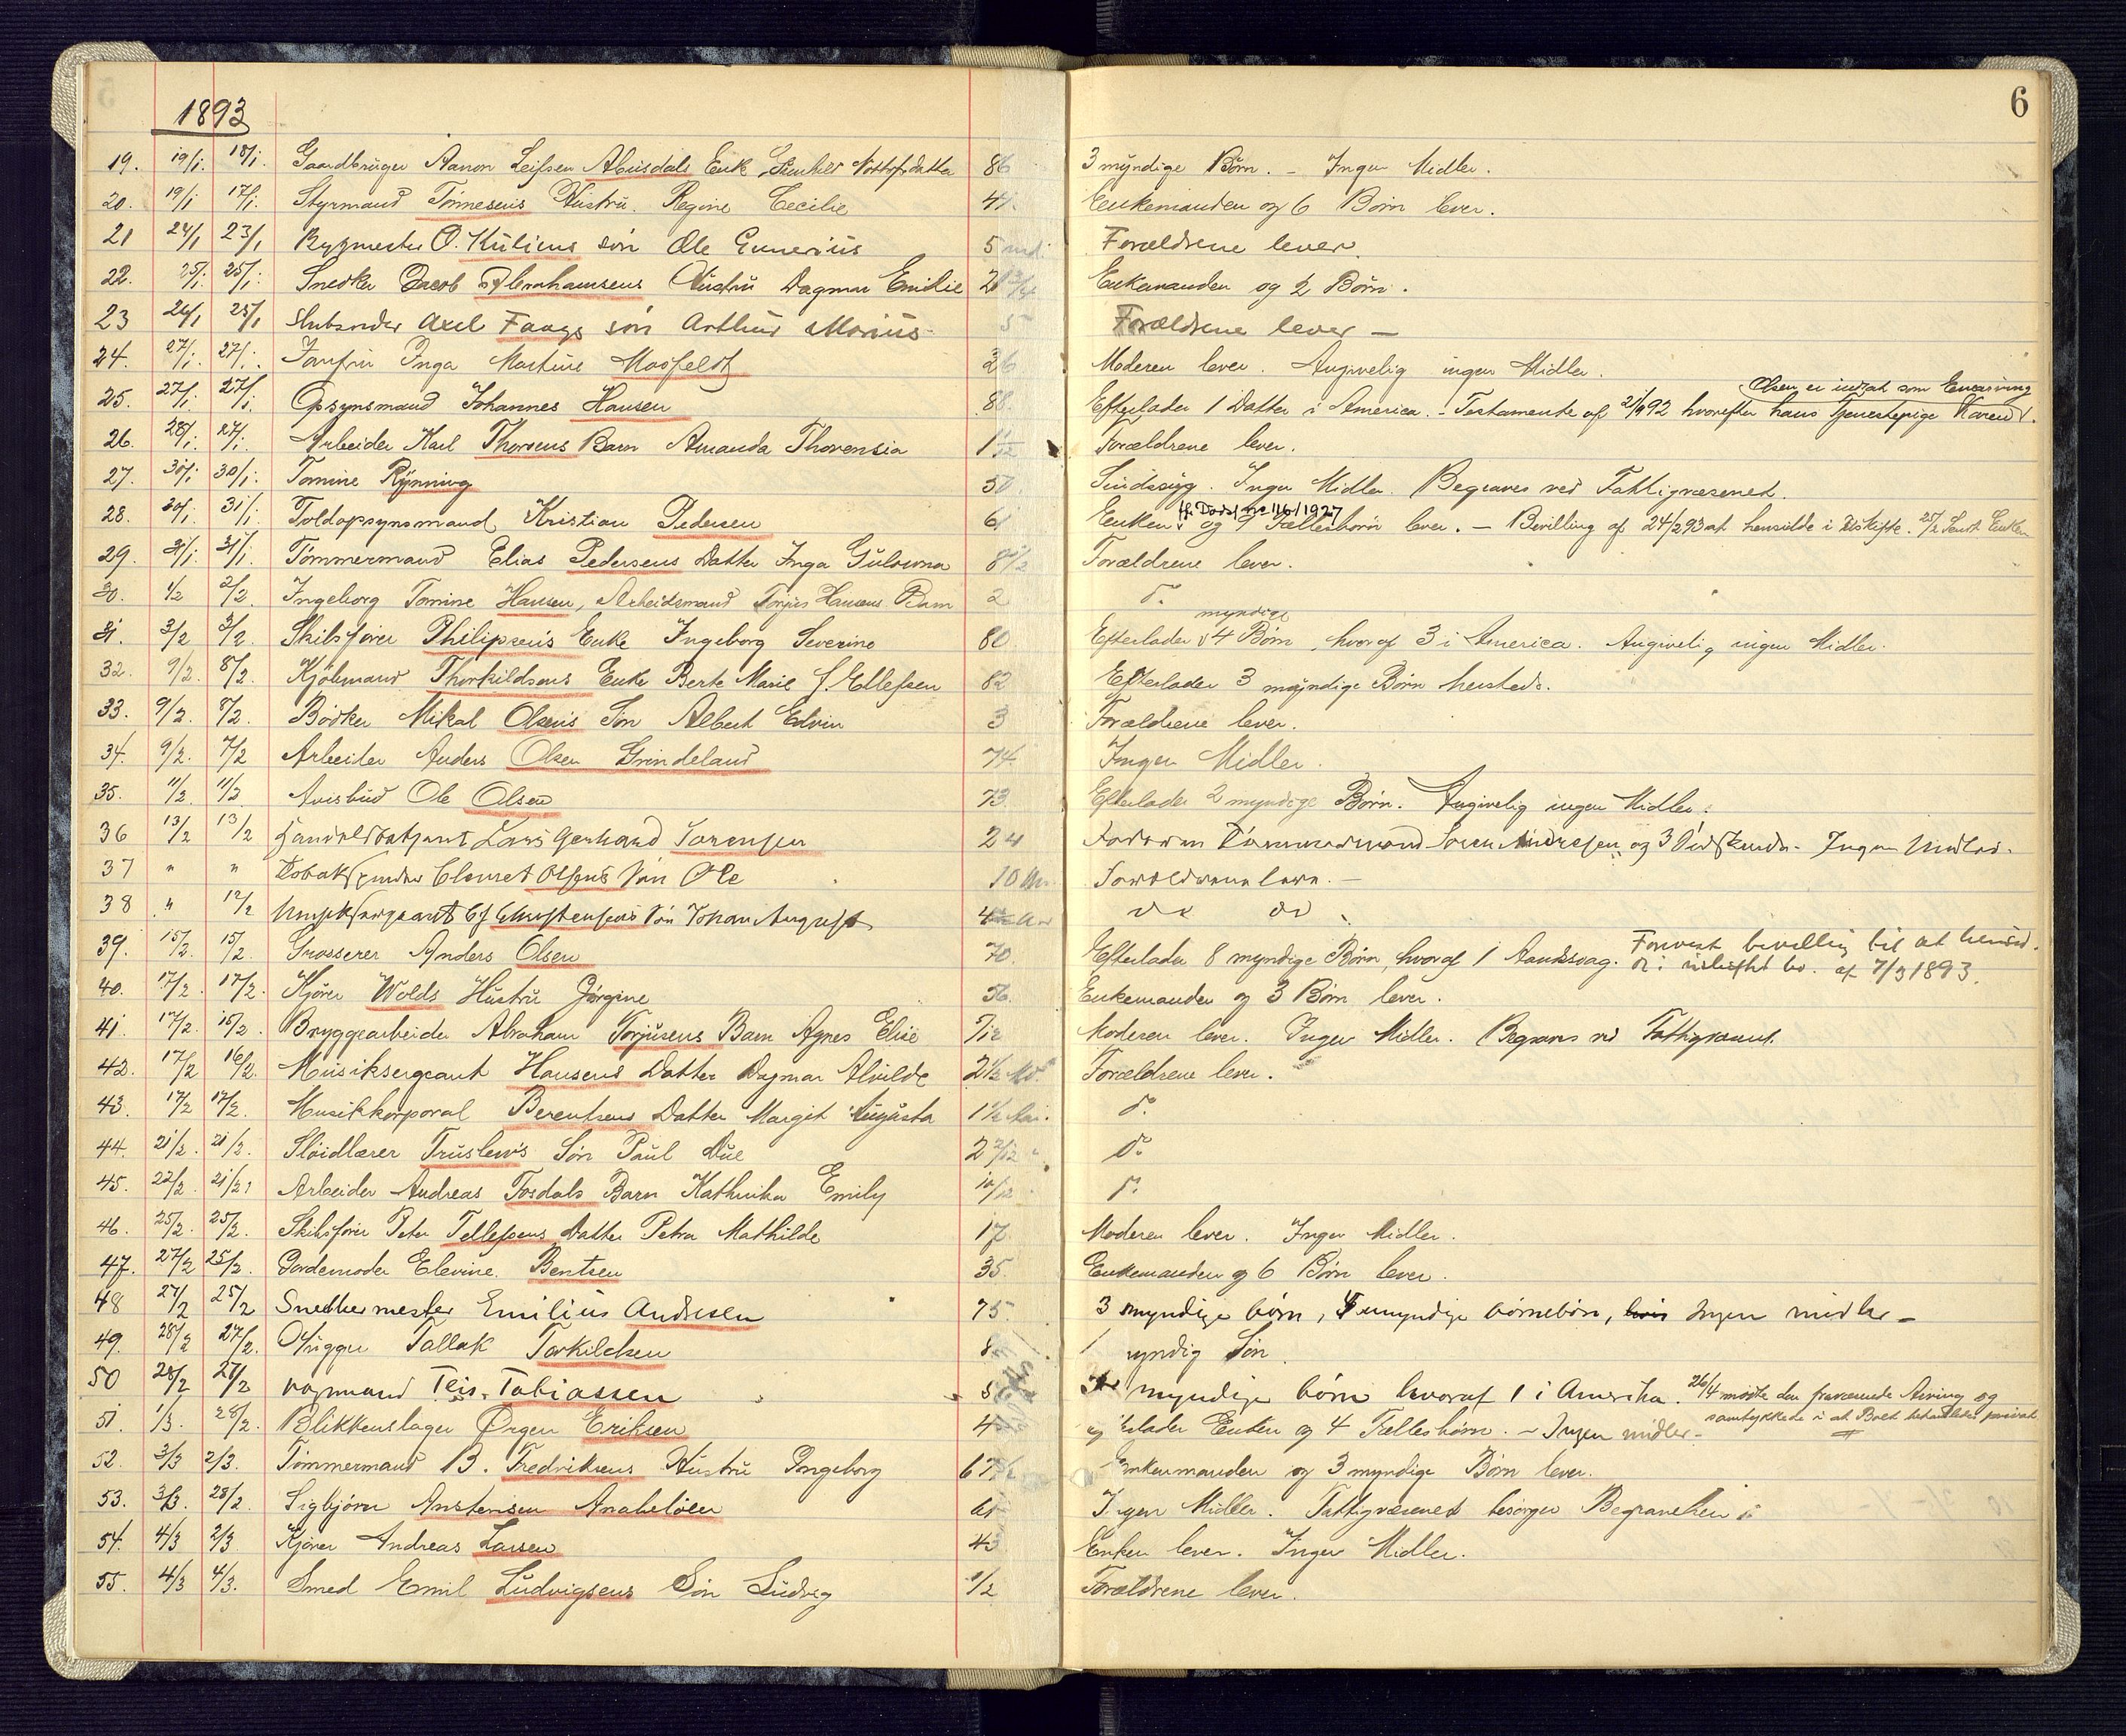 6
1893
19. 19/1. 18/1. Gaardbruger Aanon Leifsen Enke 86 3 myndige Børn. – Ingen Midler.
20. 19/1 17/1. Styrmand Tönnesens Hustru Regine Cecilie 44. Enkemanden og 6 Børn lever.
21 24/1 23/1 O. Kuliens søn Ole Gunerius 5 md. Forældrene lever.
22. 25/1. 25/1. Snedker Jacob Abrahamsens Hustru Dagmar Emilie Enkemanden og 2 Børn.
23 26/1 25/1 Axel Faags søn Arthur Marius 5 Forældrene lever –
24. 27/1. 27/1. Jomfru Inga Martine Mosfeldt 26 Moderen lever. Angivelig ingen Midler.
Olsen er indsat som Enearving
25. 27/1. 27/1. Opsynsmand Johannes Hansen 88. Efterlader 1 Datter i America. – Testamente af hvorefter hans Tjenestepige Karen
26. 28/1. 27/1. Arbeider Karl Thorsens Barn Amanda Thorensia Forældrene lever.
27. 30/1. 30/1. Tomine Rynning Sindssyg. Ingen Midler. Begraves ved Fattigvæsenet.
28. 30/1. 31/1. Toldopsynsmand Kristian Pedersen 61 Enken og Fællesbørn lever. – Bevilling af 24/2 93 at hensidde i uskifte. 25/2 Sendt Enken
ff. Dødsf. nr 116/1927
29. 31/1. 31/1. Tömmermand Elias Pedersens Datter Inga Gulovna 8 1/2 Forældrene lever.
30. 1/2 2/2. Ingeborg Tomine Hansen, Arbeidsmand Torjus Hansens Barn 2 do.
myndige
31. 3/2 3/2. Skibsfører Philipsens Enke Ingeborg Severine 80 Efterlader 4 Børn, hvoraf 3 i America. Angivelig ingen Midler.
32. 9/2. 8/2. Kjöbmand Thorkildsens Enke Berte Marie f. Ellefsen 82 Efterlader 3 myndige Børn hersteds.
33. 9/2. 8/2. Bödker Mikal Olsens Søn Albert Edvin 3 Forældrene lever.
34. 9/2. 7/2 Arbeider Anders Olsen Grindeland 74. Ingen Midler.
35. 11/2. 11/2 Avisbud Ole Olsen 73. Efterlader 2 myndige Børn. Angivelig ingen Midler.
36 13/2 13/2 Lars Gerhard Sörensen 24 og 3 – Ingen Midler.
37 " " Tobakspinder Olsens Søn Ole 10 Forældrene lever. –
38 " 12/2 Christensens Søn Johan August do do
39. 15/2. 15/2. Grosserer Anders Olsen 70. Efterlader 8 myndige Børn, hvoraf 1 Aandssvag. Forevist bevilling til at hensid-
de i uskiftet bo. af 7/3 1893.
40. 17/2. 17/2. Kjører Wolds Hustru Jörgine 56. Enkemanden og 3 Børn lever.
41. 17/2. 15/2. Bryggearbeider Abraham Torjusens Barn Agnes Elise 5/12 Moderen lever. Ingen Midler. Begraves ved Fattigvæsenet.
42. 17/2 16/2. Musiksergeant Hansens Datter Dagmar Alvilde 2 1/2 Md. Forældrene lever.
43. 17/2 17/2. Musikkorporal Berentsens Datter Margit Augusta do.
44. 21/2. 21/2. Sløidlærer Truslew's Søn Paul Due 2 2/12 do.
45. 22/2 21/2, Arbeider Andreas Tosdals Barn Kathinka Emily 10/12 do.
46. 25/2. 25/2. Skibsfører Peter Tellefsens Datter Petra Mathilde 17 Moderen lever. Ingen Midler.
47. 27/2 25/2. Jordemoder Elevine Bentsen 35. Enkemanden og 6 Børn lever.
48 27/2 25/2 Snedkermester Emilius Andresen 75. 3 myndige börn, umyndige börnebörn, ingen midler –
49. 28/2 27/2. Tallak Torkildsen 1 myndig Søn.
50 28/2 27/2 Vognmand Teis Tobiassen myndige börn hvoraf 1 i Amerika. 26/4 mødte den fraværende Arving og
samtykkede i at Boet behandledes privat.
51. 1/3. 28/2. Blikkenslager Örgen Eriksen Efterlader Enken og 4 Fællesbørn. – Ingen midler –
52. 3/3 2/3. Tömmermand B. Fredriksens Hustru Ingeborg 67 Enkemanden og 3 myndige Børn lever.
53. 3/3. 28/2. Sigbjörn Anstensen Ingen Midler. Fattigvæsenet besørger Begravelsen
54. 4/3 2/3. Kjører Andreas Larsen 43 Enken lever. Ingen Midler.
55. 4/3 4/3. Smed Emil Ludvigsens Søn Ludvig 1/2 Forældrene lever.